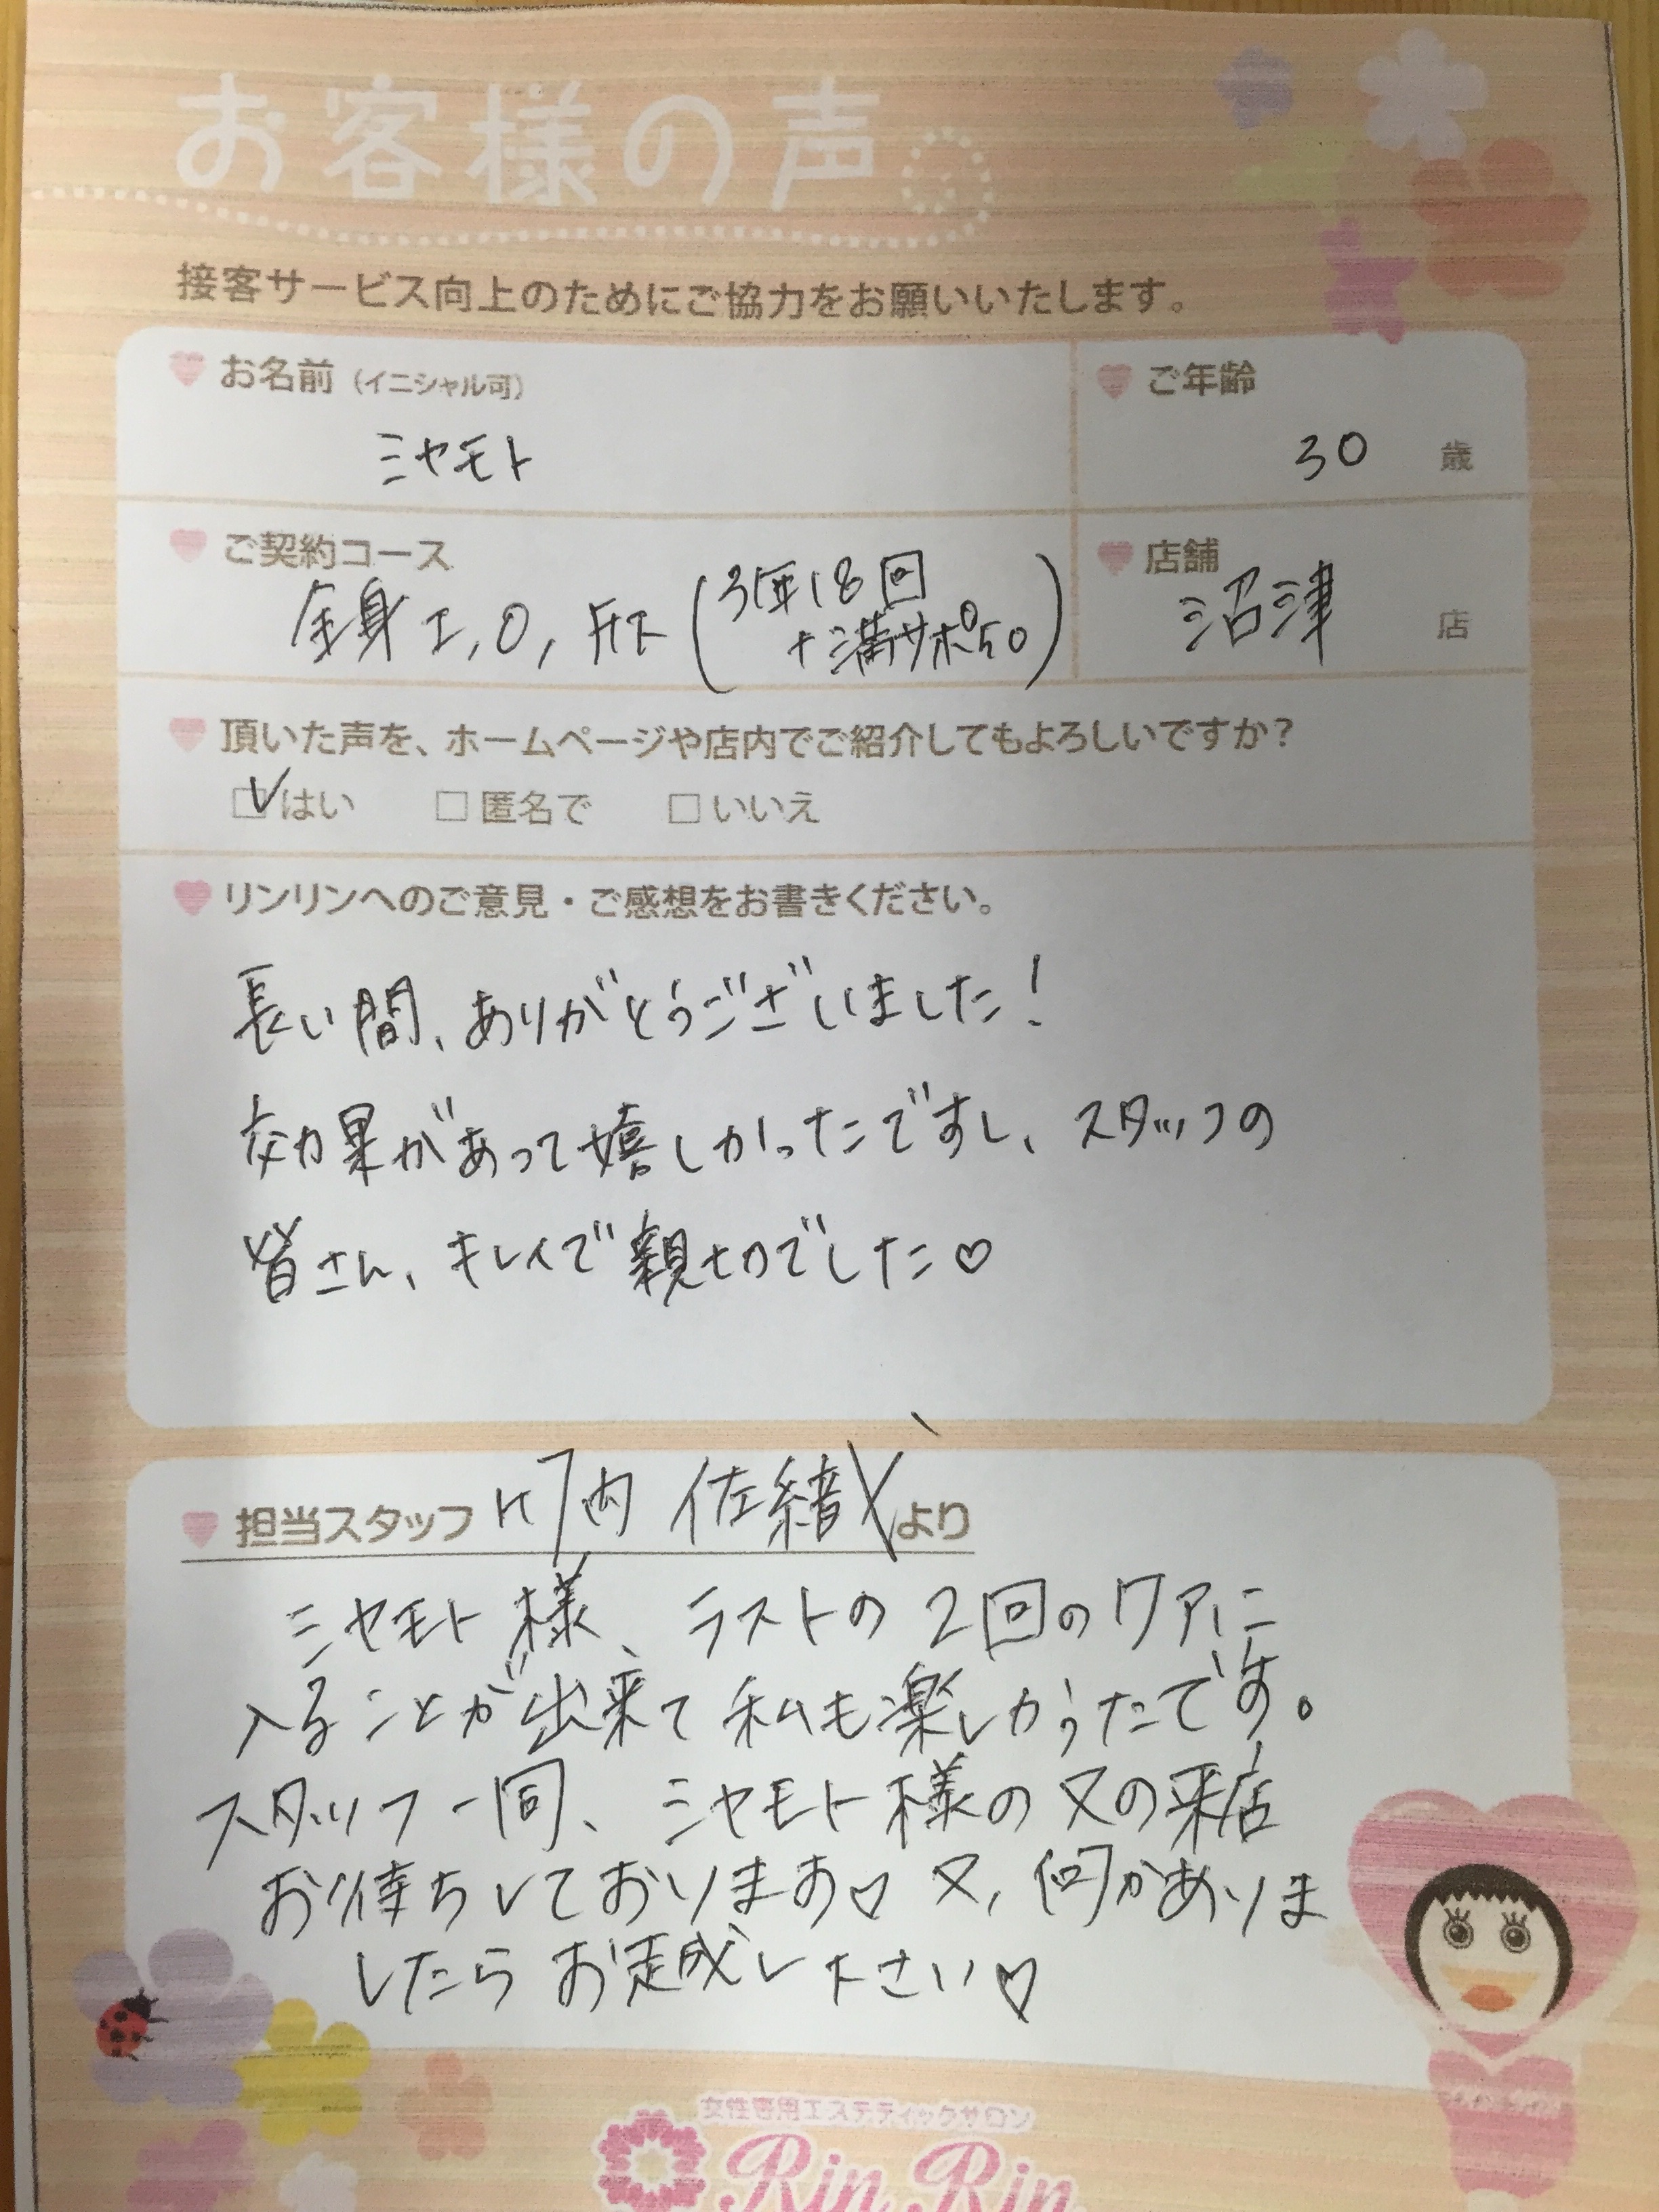 お客様の声
接客サービス向上のためにご協力をお願いいたします。
お名前（イニシャル可）
ミヤモト
ご年齢
30 歳
ご契約コース
全身エ,O,
(3年18回
+満サポ50)
店舗
沼津 店
頂いた声を、ホームページや店内でご紹介してもよろしいですか？
はい 匿名で いいえ
リンリンへのご意見・ご感想をお書きください。
長い間、ありがとうございました！
効果があって嬉しかったですし、スタッフの
皆さん、キレイで親切でした♡
担当スタッフ 内 佐緒 より
ミヤモト様、ラストの2回のケアに
入ることが出来て私も楽しかったです。
スタッフ一同、ミヤモト様の又の来店
お待ちしております♡ 又、何かありま
したらお越し下さい♡
女性専用エステティックサロン
Rin Rin